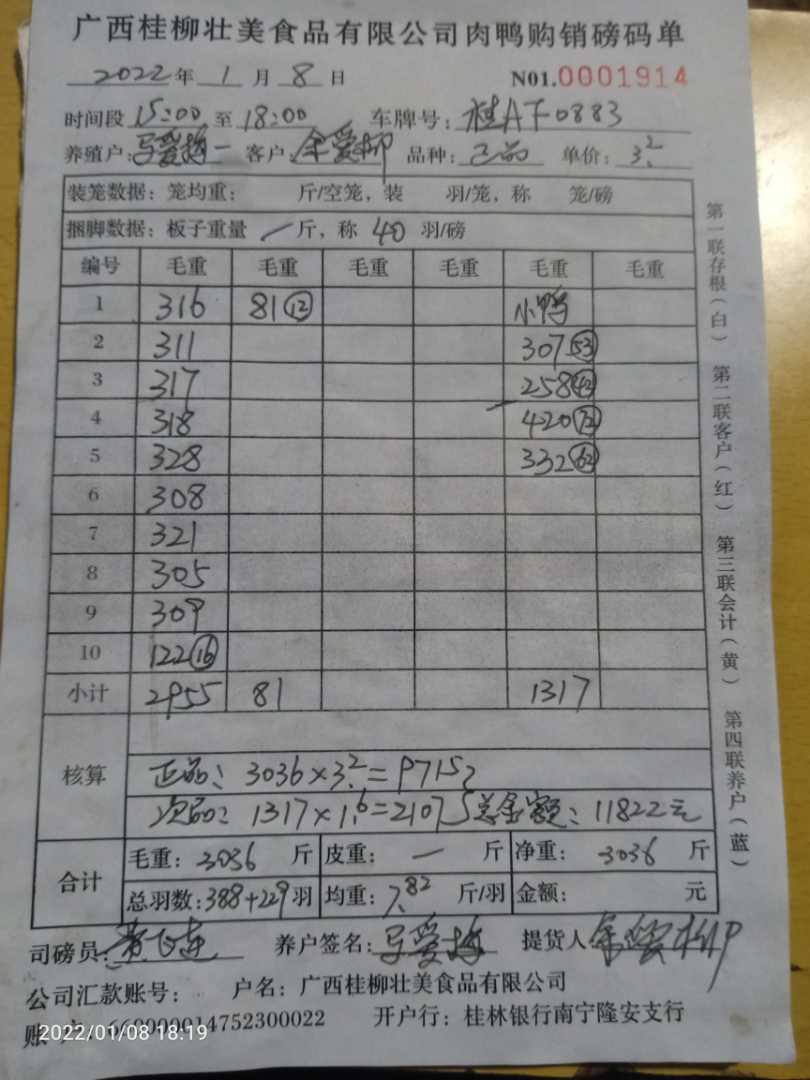 广西桂柳壮美食品有限公司肉鸭购销磅码单
2022年 1 月 8 日 N01.0001914
时间段 15:00 至 18:00 车牌号: 桂AF0883
养殖户: 马爱梅一 客户: 余爱柳 品种: 正品 单价: 3.2
装笼数据: 笼均重: 斤/空笼, 装 羽/笼, 称 笼/磅
捆脚数据: 板子重量 一 斤, 称 40 羽/磅
编号 毛重 毛重 毛重 毛重 毛重 毛重
1 316 81⑫ 小鸭
2 311 307(53)
3 317 258
4 318 420(72)
5 328 332(62)
6 308
7 321
8 305
9 309
10 122⑯
小计 2955 81 1317
核算
正品: 3036×3.2=9715.2
次品: 1317×1.6=2107.5 总金额: 11822元
合计
毛重: 3036 斤 皮重: 一 斤 净重: 3036 斤
总羽数: 388+229羽 均重: 7.82 斤/羽 金额: 元
司磅员: 养户签名: 马爱梅 提货人 余爱柳
公司汇款账号: 户名: 广西桂柳壮美食品有限公司
账 14752300022 开户行: 桂林银行南宁隆安支行
2022/01/08 18:19
第一联存根(白) 第二联客户(红) 第三联会计(黄) 第四联养户(蓝)